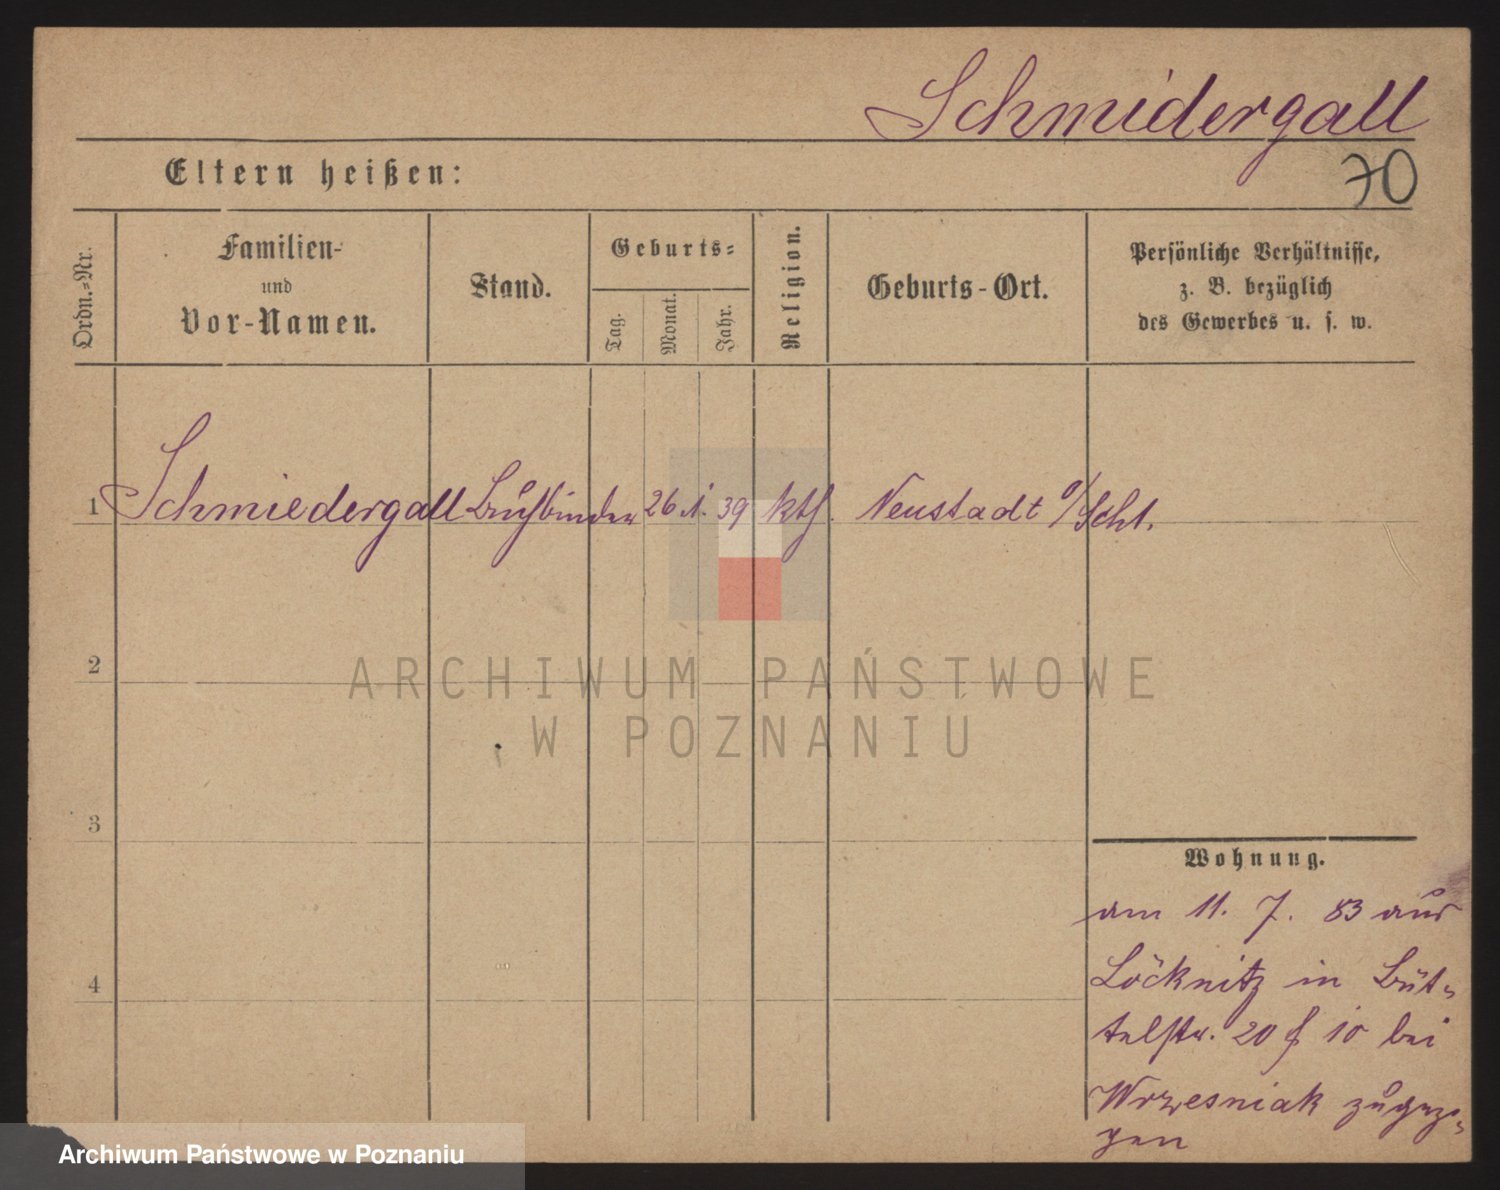 Schmidergall
70
Eltern heißen:
Ordn.=Nr.
Familien-
und
Vor-Namen.
Stand.
Geburts=
Tag.
Monat.
Jahr.
Religion.
Geburts-Ort.
Persönliche Verhältnisse,
z. B. bezüglich
des Gewerbes u. s. w.
1 Schmiedergall Buchbinder 26 1. 39 kth. Neustadt o/Schl.
2
3
4
Wohnung.
am 11. 7. 83 aus
Löcknitz in Büt-
telstr. 20 10 bei
Wrzesniak zugezo-
gen
ARCHIWUM PAŃSTWOWE
W POZNANIU
Archiwum Państwowe w Poznaniu